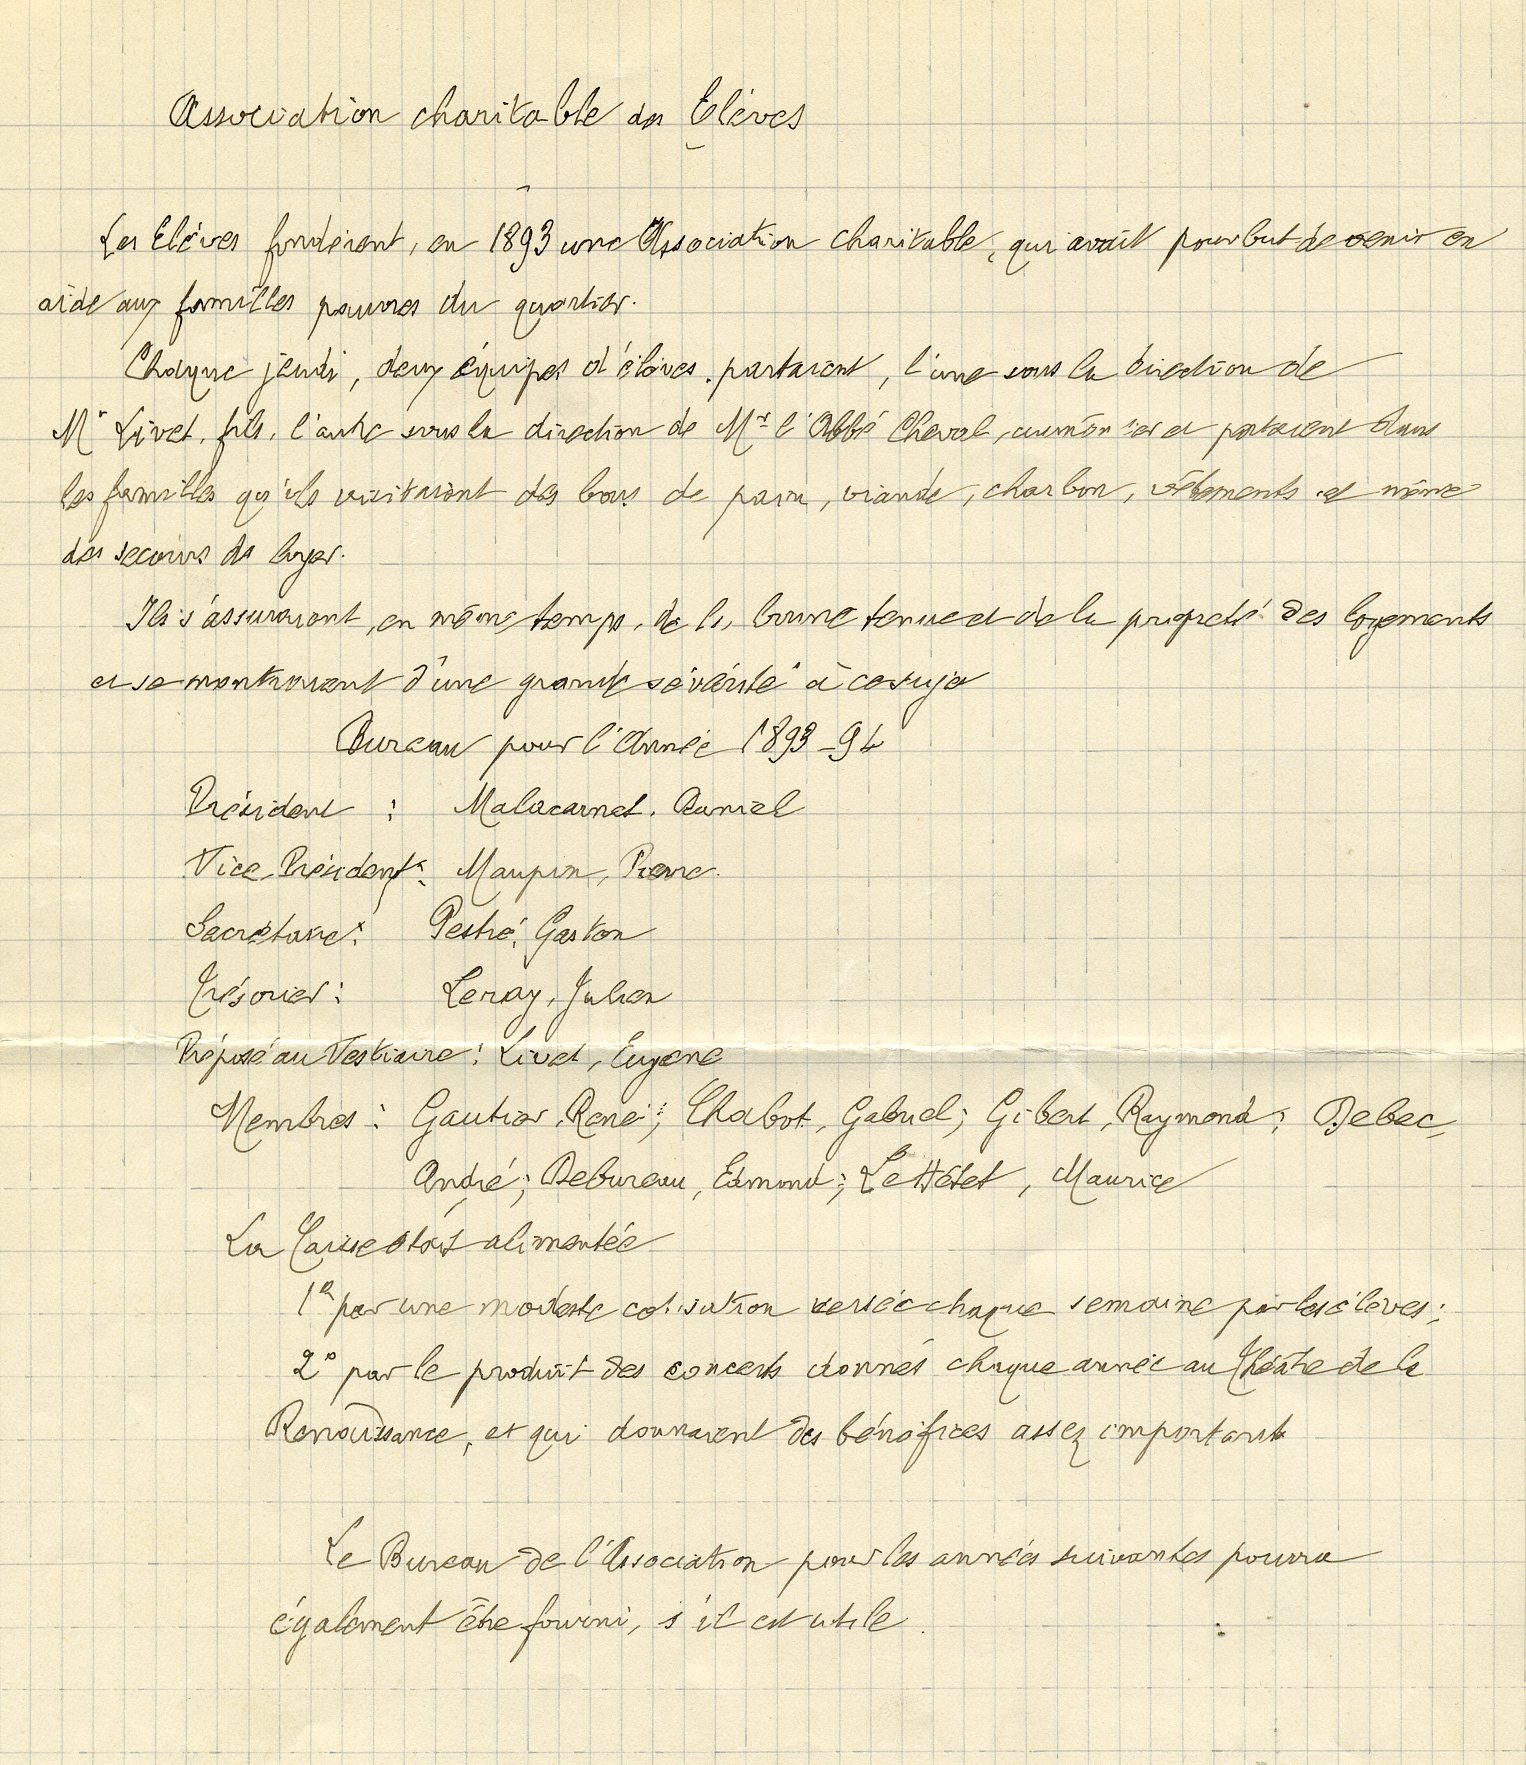 Association charitable des Elèves
Les Elèves fondèrent, en 1893 une Association charitable, qui avait pour but de venir en
aide aux familles pauvres du quartier.
Chaque jeudi, deux équipes d'élèves partaient, l'une sous la direction de
Mr Livet, fils, l'autre sous la direction de Mr l'Abbé Cheval, aumônier et portaient dans
les familles qu'ils visitaient des bons de pain, viande, charbon, vêtements et même
des secours de loyer.
Ils s'assuraient, en même temps, de la bonne tenue et de la propreté des logements
et se montraient d'une grande sévérité à ce sujet
Bureau pour l'Année 1893-94
Président : Malacarnet, Daniel
Vice-Président : Maupin, Pierre.
Secrétaire : Pestré, Gaston
Trésorier : Leray, Julien
Préposé au Vestiaire : Livet, Eugène
Membres : Gautier, René ; Chabot, Gabriel ; Gibert, Raymond ; Debec,
André ; Debureau, Edmond ; Le Hétet, Maurice
La Caisse était alimentée
1o par une modeste cotisation versée chaque semaine par les élèves ;
2o par le produit des concerts donnés chaque année au Théâtre de la
Renaissance, et qui donnaient des bénéfices assez importants
Le Bureau de l'Association pour les années suivantes pourra
également être fourni, s'il est utile.